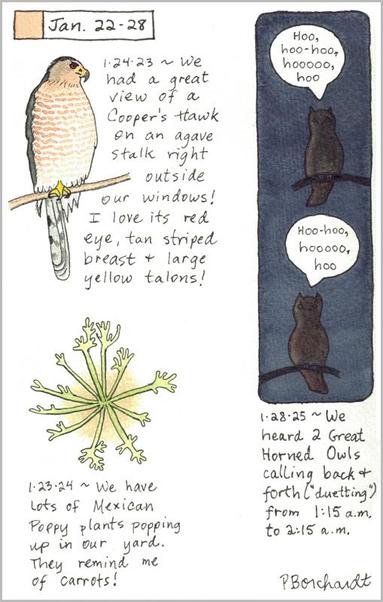 Jan. 22-28
1·24·23 ~ We
had a great
view of a
Cooper's Hawk
on an agave
stalk right
outside
our windows!
I love its red
eye, tan striped
breast + large
yellow talons!
1·23·24 ~ We have
lots of Mexican
Poppy plants popping
up in our yard.
They remind me
of carrots!
Hoo,
hoo-hoo,
hooooo,
hoo
Hoo-hoo,
hooooo,
hoo
1·28·25 ~ We
heard 2 Great
Horned Owls
calling back +
forth ("duetting")
from 1:15 a.m.
to 2:15 a.m.
PBorchardt